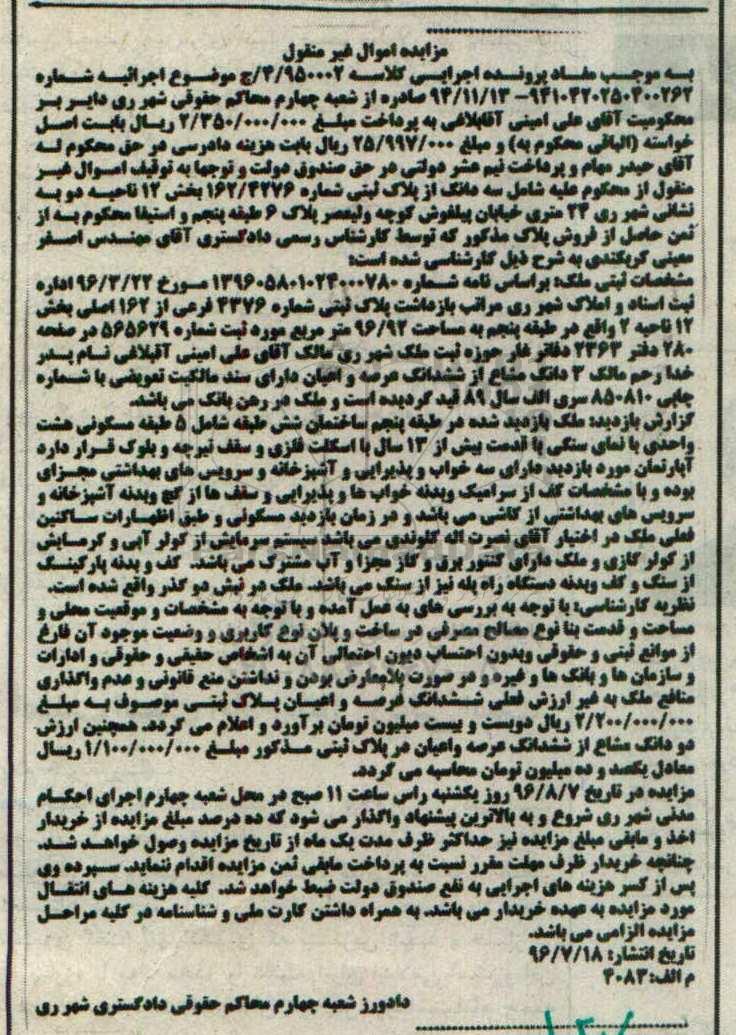 مزایده اموال غیر منقول
به موجب مفاد پرونده اجرایی کلاسه ۴/۹۵۰۰۰۲/ج موضوع اجرائیه شماره
۹۴۱۰۴۲۰۲۵۰۴۰۰۲۶۲– ۹۴/۱۱/۱۳ صادره از شعبه چهارم محاکم حقوقی شهر ری دایر بر
محکومیت آقای علی امینی آقبلاغی به پرداخت مبلغ ۲/۳۵۰/۰۰۰/۰۰۰ ریال بابت اصل
خواسته (الباقی محکوم به) و مبلغ ۲۵/۹۹۷/۰۰۰ ریال بابت هزینه دادرسی در حق محکوم له
آقای حیدر مهام و پرداخت نیم عشر دولتی در حق صندوق دولت و توجها به توقیف اموال غیر
منقول از محکوم علیه شامل سه دانگ از پلاک ثبتی شماره ۱۶۲/۴۲۷۶ بخش ۱۲ ناحیه دو به
نشانی شهر ری ۲۴ متری خیابان پیلغوش کوچه ولیعصر پلاک ۶ طبقه پنجم و استیفا محکوم به از
ثمن حاصل از فروش پلاک مذکور که توسط کارشناس رسمی دادگستری آقای مهندس اصغر
معینی گریکندی به شرح ذیل کارشناسی شده است:
مشخصات ثبتی ملک: براساس نامه شماره ۱۳۹۶۰۵۸۰۱۰۲۴۰۰۰۷۸۰ مورخ ۹۶/۳/۲۲ اداره
ثبت اسناد و املاک شهر ری مراتب بازداشت پلاک ثبتی شماره ۴۳۷۶ فرعی از ۱۶۲ اصلی بخش
۱۲ ناحیه ۲ واقع در طبقه پنجم به مساحت ۹۶/۹۲ متر مربع مورد ثبت شماره ۵۶۵۶۲۹ در صفحه
۲۸۰ دفتر ۲۳۶۳ دفاتر غار حوزه ثبت ملک شهر ری مالک آقای علی امینی آقبلاغی نام پدر
خدا رحم مالک ۳ دانگ مشاع از ششدانگ عرصه و اعیان دارای سند مالکیت تعویضی با شماره
چاپی ۸۵۰۸۱۰ سری الف سال ۸۹ قید گردیده است و ملک در رهن بانک می باشد.
گزارش بازدید: ملک بازدید شده در طبقه پنجم ساختمان شش طبقه شامل ۵ طبقه مسکونی هشت
واحدی با نمای سنگی با قدمت بیش از ۱۳ سال با اسکلت فلزی و سقف تیرچه و بلوک قرار دارد
آپارتمان مورد بازدید دارای سه خواب و پذیرایی و آشپزخانه و سرویس های بهداشتی مجزای
بوده و با مشخصات کف از سرامیک وبدنه خواب ها و پذیرایی و سقف ها از گچ وبدنه آشپزخانه و
سرویس های بهداشتی از کاشی می باشد و در زمان بازدید مسکونی و طبق اظهارات ساکنین
فعلی ملک در اختیار آقای نصرت اله گلوندی می باشد سیستم سرمایش از کولر آبی و گرمایش
از کولر گازی و ملک دارای کنتور برق و گاز مجزا و آب مشترک می باشد. کف و بدنه پارکینگ
از سنگ و کف وبدنه دستگاه راه پله نیز از سنگ می باشد. ملک در نبش دو گذر واقع شده است.
نظریه کارشناسی: با توجه به بررسی های به عمل آمده و با توجه به مشخصات و موقعیت محلی و
مساحت و قدمت بنا نوع مصالح مصرفی در ساخت و پلان نوع کاربری و وضعیت موجود آن فارغ
از موانع ثبتی و حقوقی وبدون احتساب دیون احتمالی آن به اشخاص حقیقی و حقوقی و ادارات
و سازمان ها و بانک ها و غیره و در صورت بلامعارض بودن و نداشتن منع قانونی و عدم واگذاری
منافع ملک به غیر ارزش فعلی ششدانگ عرصه و اعیان پلاک ثبتی موصوف به مبلغ
۲/۲۰۰/۰۰۰/۰۰۰ ریال دویست و بیست میلیون تومان برآورد و اعلام می گردد. همچنین ارزش
دو دانگ مشاع از ششدانگ عرصه واعیان در پلاک ثبتی مذکور مبلغ ۱/۱۰۰/۰۰۰/۰۰۰ ریال
معادل یکصد و ده میلیون تومان محاسبه می گردد.
مزایده در تاریخ ۹۶/۸/۷ روز یکشنبه راس ساعت ۱۱ صبح در محل شعبه چهارم اجرای احکام
مدنی شهر ری شروع و به بالاترین پیشنهاد واگذار می شود که ده درصد مبلغ مزایده از خریدار
اخذ و مابقی مبلغ مزایده نیز حداکثر ظرف مدت یک ماه از تاریخ مزایده وصول خواهد شد.
چنانچه خریدار ظرف مهلت مقرر نسبت به پرداخت مابقی ثمن مزایده اقدام ننماید. سپرده وی
پس از کسر هزینه های اجرایی به نفع صندوق دولت ضبط خواهد شد. کلیه هزینه های انتقال
مورد مزایده به عهده خریدار می باشد. به همراه داشتن کارت ملی و شناسنامه در کلیه مراحل
مزایده الزامی می باشد.
تاریخ انتشار: ۹۶/۷/۱۸
م الف:۴۰۸۳
دادورز شعبه چهارم محاکم حقوقی دادگستری شهر ری